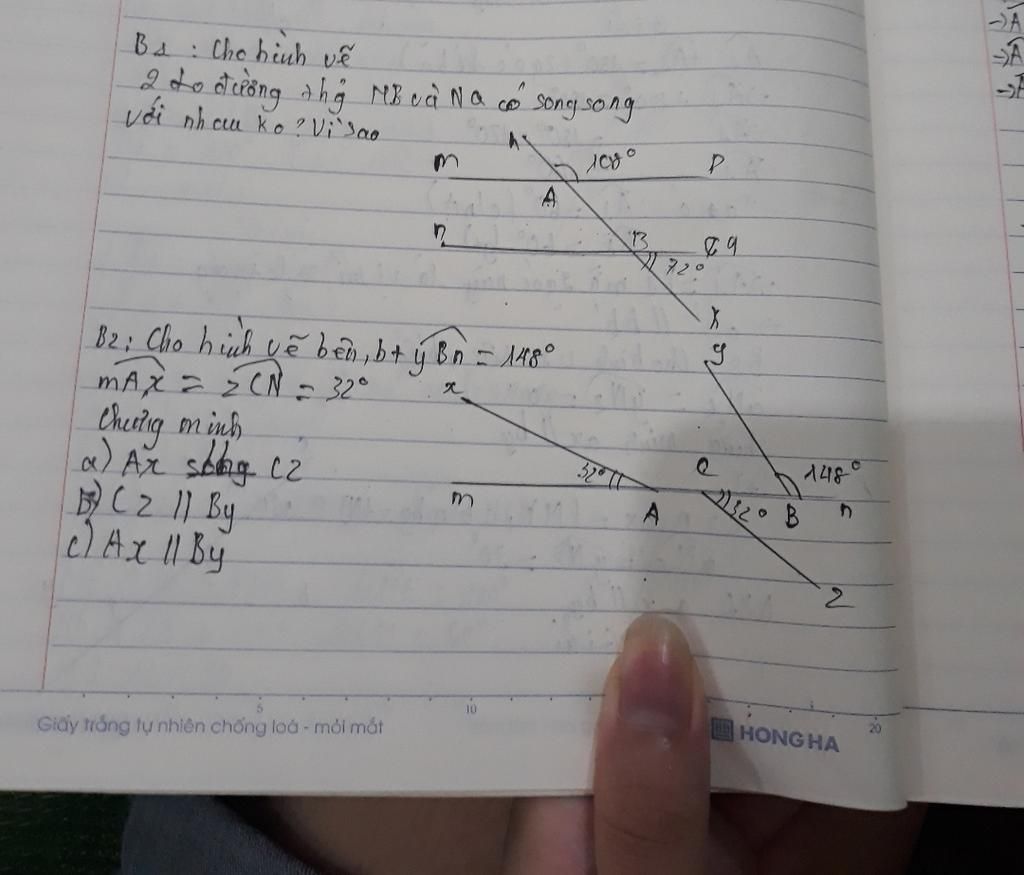 B1 : Cho hình vẽ
2 đo đường thg MB và Na có song song
với nhau ko? Vì sao
m 108° P
A
n B q
72°
x
B2: Cho hình vẽ bên, bt yBn = 148°
mAx = zCN = 32°
Chứng minh
a) Ax song CZ
b) CZ // By
c) Ax // By
y
x
32° C 148°
m A 32° B n
Z
5 10 20
Giấy trắng tự nhiên chống loá - mỏi mắt
HONG HA
→A
⇒A